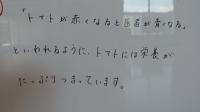 「トマトが赤くなると医者が青くなる」
といわれるように、トマトには栄養が
たっぷりつまっています。